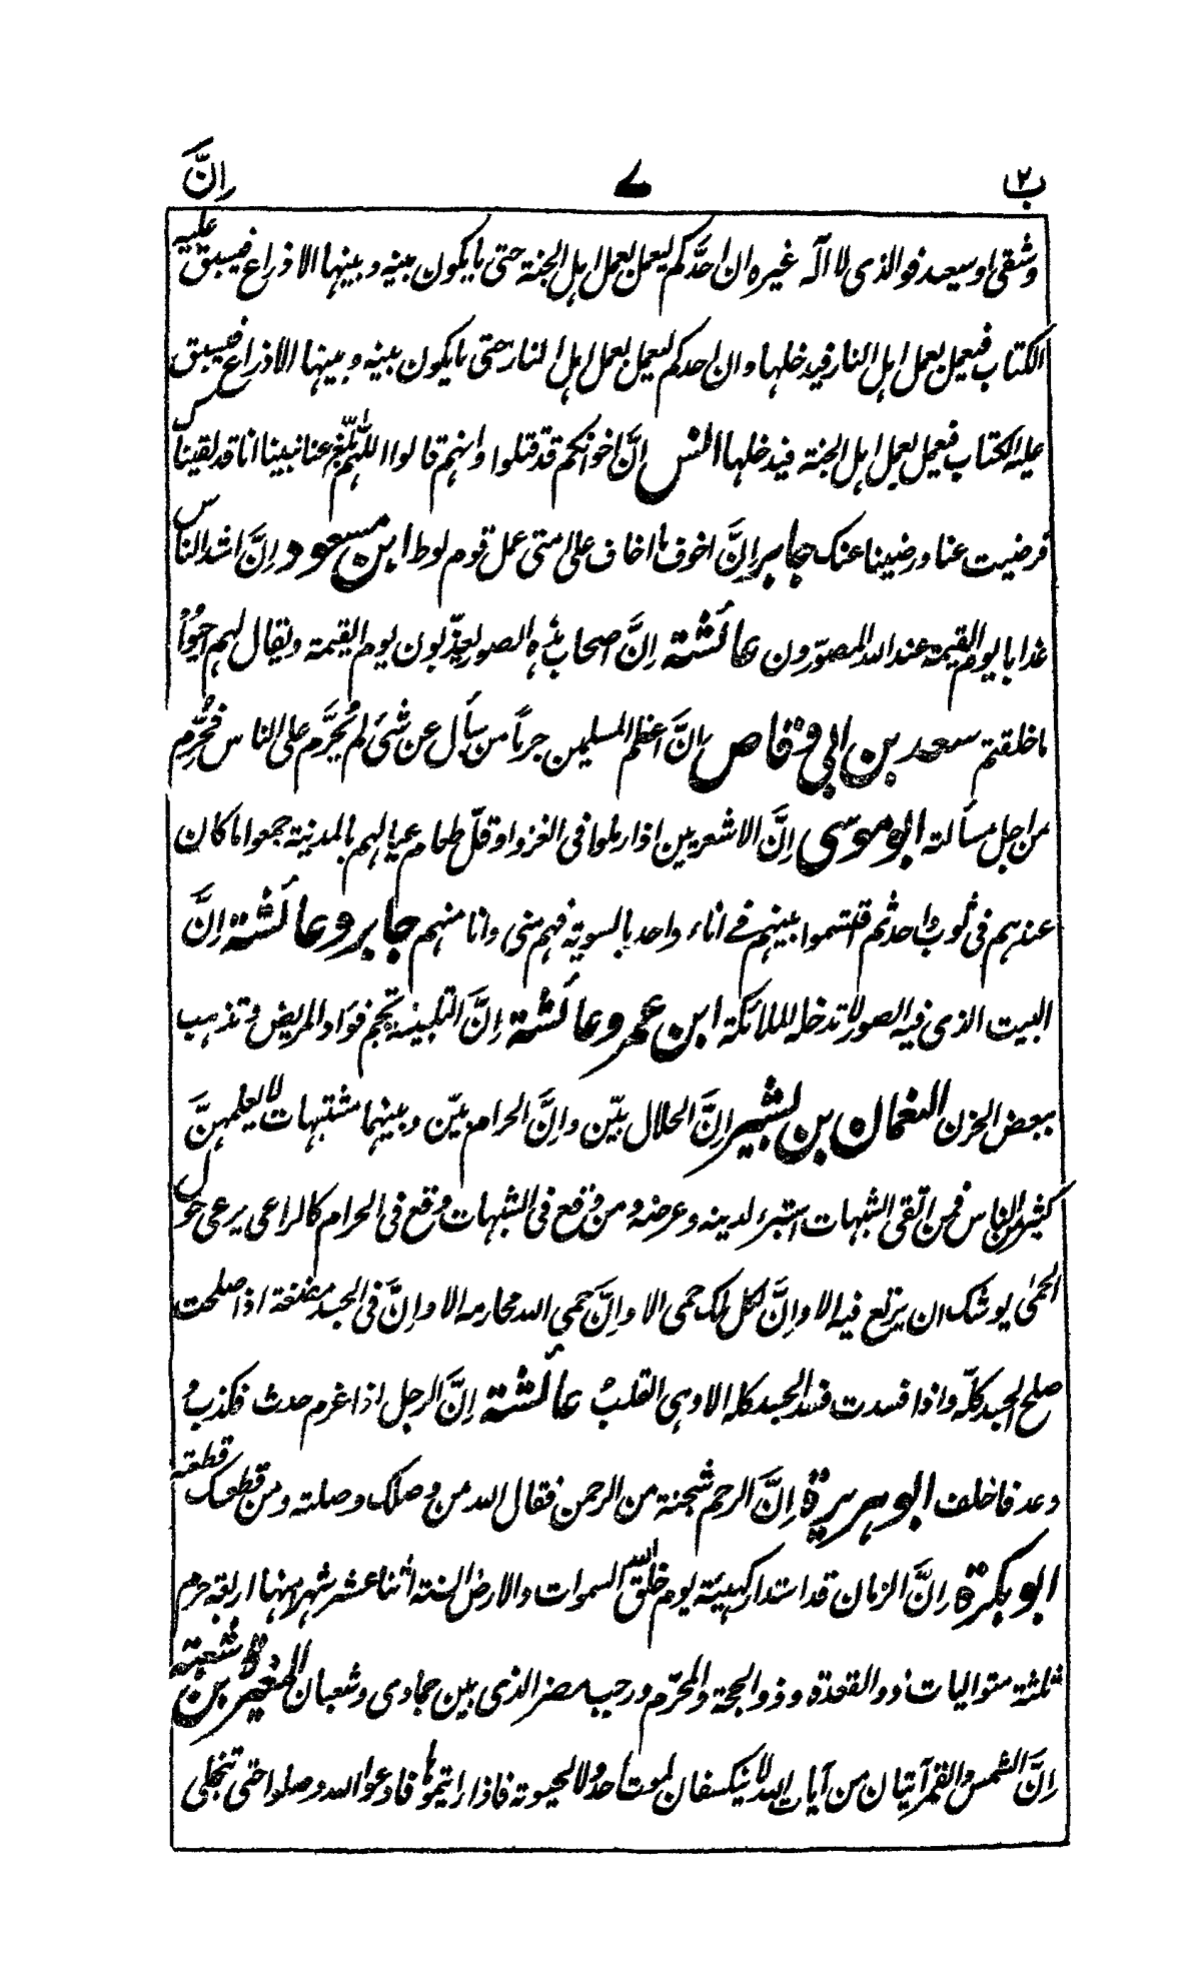 ب٢ ٧ اِنَّ
وشقى او سعيد فوالذى لا اله غيره ان احدكم ليعمل بعمل اهل الجنة حتى ما يكون بينه وبينها الا ذراع فيسبق عليه
الكتاب فيعمل بعمل اهل النار فيدخلها وان احدكم ليعمل بعمل اهل النار حتى ما يكون بينه وبينها الا ذراع فيسبق
عليه الكتاب فيعمل بعمل اهل الجنة فيدخلها انس اِنَّ اخوانكم قد قتلوا وانهم قالوا اللّٰهم بلّغ عنا نبينا انا قد لقيناك
فرضيت عنا ورضينا عنك جابر اِنَّ اخوف ما اخاف على امتى عمل قوم لوط ابن مسعود اِنَّ اشد الناس
عذابا يوم القيمة عند الله المصوّرون عائشة اِنَّ اصحاب هذه الصور يعذّبون يوم القيمة ويقال لهم احيوا
ما خلقتم سعد بن ابى وقاص اِنَّ اعظم المسلمين جرماً من سأل عن شئ لم يُحرَّم على الناس فحُرّم
من اجل مسألته ابو موسى اِنَّ الاشعريين اذا ارملوا فى الغزو او قلّ طعام عيالهم بالمدينة جمعوا ما كان
عندهم فى ثوب واحد ثم اقتسموا بينهم فے اناء واحد بالسوية فهم منى وانا منهم جابر وعائشة اِنَّ
البيت الذى فيه الصور لا تدخله الملائكة ابن عمر وعائشة اِنَّ التلبينة تجم فؤاد المريض وتذهب
ببعض الحزن النعمان بن بشير اِنَّ الحلال بيّن واِنَّ الحرام بيّن وبينهما مشتبهات لا يعلمهنَّ
كثير من الناس فمن اتّقى الشبهات استبرء لدينه وعرضه ومن وقع فى الشبهات وقع فى الحرام كالراعى يرعى حول
الحمىٰ يوشك ان يرتع فيه الا واِنَّ لكل ملك حمى الا واِنَّ حمى الله محارمه الا واِنَّ فى الجسد مضغة اذا صلحت
صلح الجسد كلّه واذا فسدت فسد الجسد كله الا وهى القلب عائشة اِنَّ الرجل اذا غرم حدث فكذب و
وعد فاخلف ابو هريرة اِنَّ الرحم شجنة من الرحمن فقال الله من وصلك وصلته ومن قطعك قطعته
ابو بكرة اِنَّ الزمان قد استدار كهيئة يوم خلق الله السموات والارض السنة اثنا عشر شهرا منها اربعة حرم
ثلثة متواليات ذو القعدة وذو الحجة والمحرّم ورجب مضر الذى بين جمادى وشعبان المغيرة بن شعبة
اِنَّ الشمس والقمر آيتان من آيات الله لا ينكسفان لموت احد ولا لحيوته فاذا رايتموها فادعوا الله وصلوا حتى تنجلى